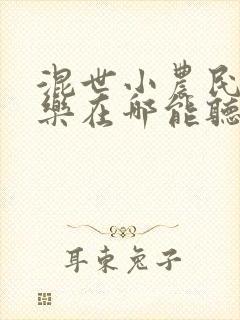 混世小農民
樂在哪能聽
耳東兔子